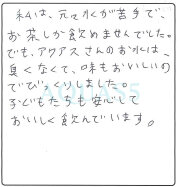 私は、元々水が苦手で、
お茶しか飲めませんでした。
でも、アクアスさんのお水は、
臭くなくて、味もおいしいの
でびっくりしました。
子どもたちも安心して
おいしく飲んでいます。
AQUASS